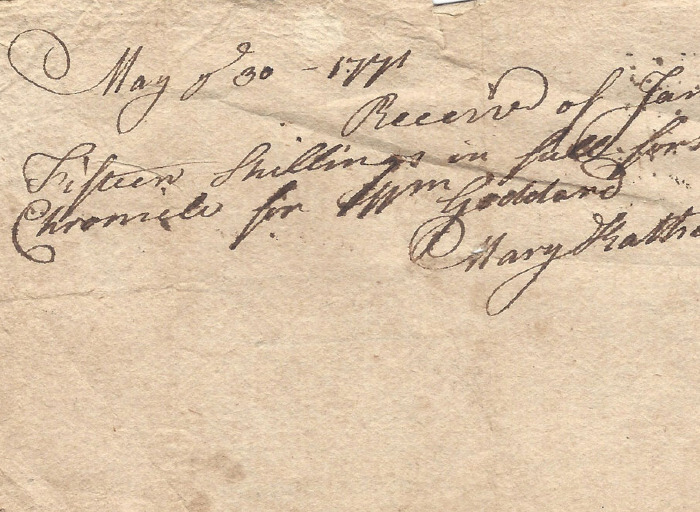 May ye 30 - 1771
Received of Jam
Fifteen Shillings in full for
Chronicle for Wm Goddard
Mary Kathe